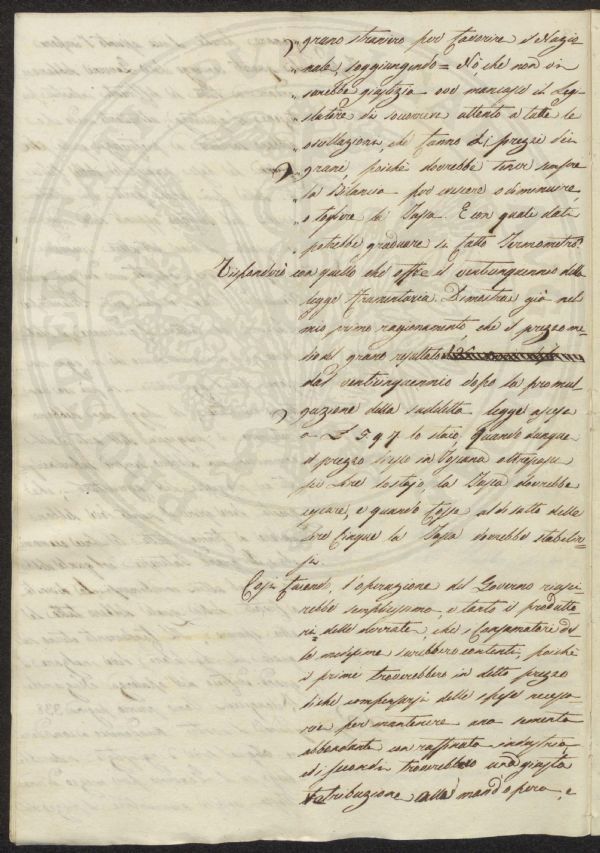 „ grano straniero per favorire il Nazio-
„ nale, soggiungendo = Nò che non vi
„ sarebbe giustizia ove mancasse il Legi-
„ slatore di soccorrere attento a tutte le
„ oscillazioni, che fanno i prezzi dei
„ grani, poichè dovrebbe tener sempre
„ la Bilancia per crescere o diminuire,
„ o togliere la Tassa. E con quale dati
„ potrebbe graduare sì fatto Termometro?
Risponderò con quello che offre il ventinquennio della
legge frumentaria. Dimostrai già nel
mio primo ragionamento, che il prezzo me-
dio del grano resultato
dal ventinquennio dopo la promul-
gazione della suddetta legge ascese
a £ 5 9 7 lo staio, Quando dunque
il prezzo stesso in Toscana oltrepassi
sei Lire lo stajo, la Tassa dovrebbe
cessare, e quando fosse al di sotto delle
Lire Cinque la Tassa dovrebbe stabilir-
si
Così facendo, l'operazione del Governo riusci-
rebbe semplicissima, e tanto il produtto-
ri delle derrate, che i Consumatori de-
le medesime sarebbero contenti, poichè
i primi troverebbero in detto prezzo
di che compensarsi delle spese necessa-
rie per mantenere una sementa
abbondante con raffinata industria,
ed i secondi troverebbero una giusta
retribuzione alla mano d'opera, e